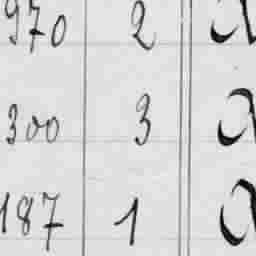 970 2
300 3
187 1